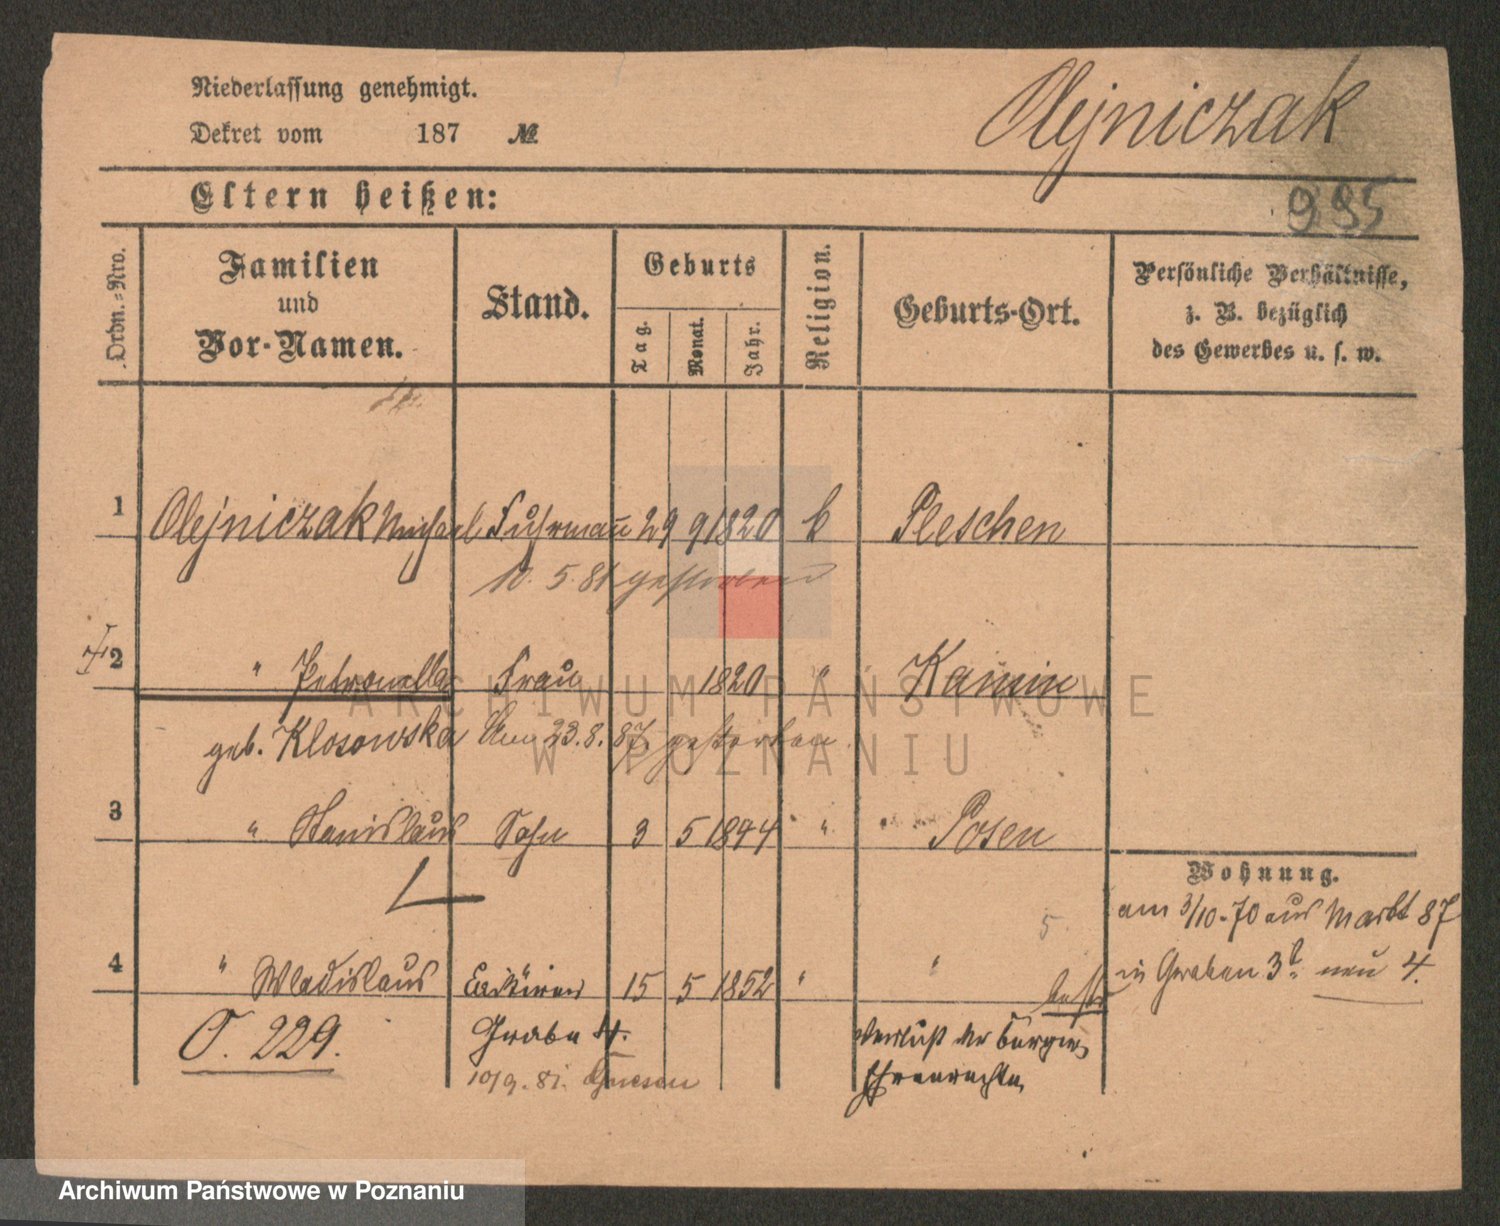 Niederlassung genehmigt.
Olejniczak
Dekret vom 187 №
Eltern heißen:
995
Ordn.-Nro.
Familien und Vor-Namen.
Stand.
Geburts
Tag. Monat. Jahr.
Religion.
Geburts-Ort.
Persönliche Verhältnisse, z. B. bezüglich des Gewerbes u. s. w.
1 Olejniczak Michael Fuhrmañ 29 9 1820 k Pleschen
10. 5. 81 gestorben
2 " Petronella Frau 1820 " Kamin
geb. Klosowska Am 23. 8. 87 gestorben
3 " Stanislaus Sohn 3 5 1844 " Posen
Wohnung.
am 3/10-70 aus Markt 87
4 " Wladislaus 15 5 1852 " "
in Graben 3 neu 4.
O. 229. Graben 4. Verlust der bürger
10/9. 81. Gnesen Ehrenrechte
ARCHIWUM PAŃSTWOWE
W POZNANIU
Archiwum Państwowe w Poznaniu